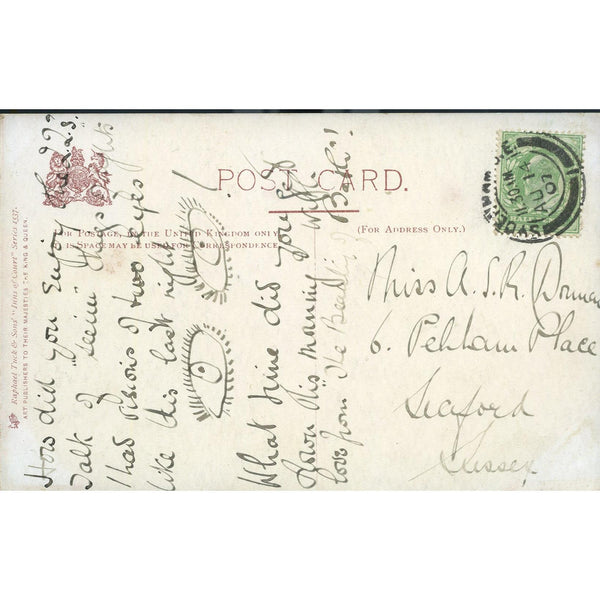 POST CARD.
FOR POSTAGE IN THE UNITED KINGDOM ONLY
THIS SPACE MAY BE USED FOR CORRESPONDENCE
(FOR ADDRESS ONLY.)
Raphael Tuck & Sons' "Inns of Court" Series 1557.
ART PUBLISHERS TO THEIR MAJESTIES THE KING & QUEEN.
How did you enjoy the
Talk of "seeing" things
I had visions of two eyes
like this last night!
What time did you get
down this morning
love from
Miss A.S.R.
6. Pelham Place
Seaford
Sussex
SYDENHAM
30
JU 14
07
HALF